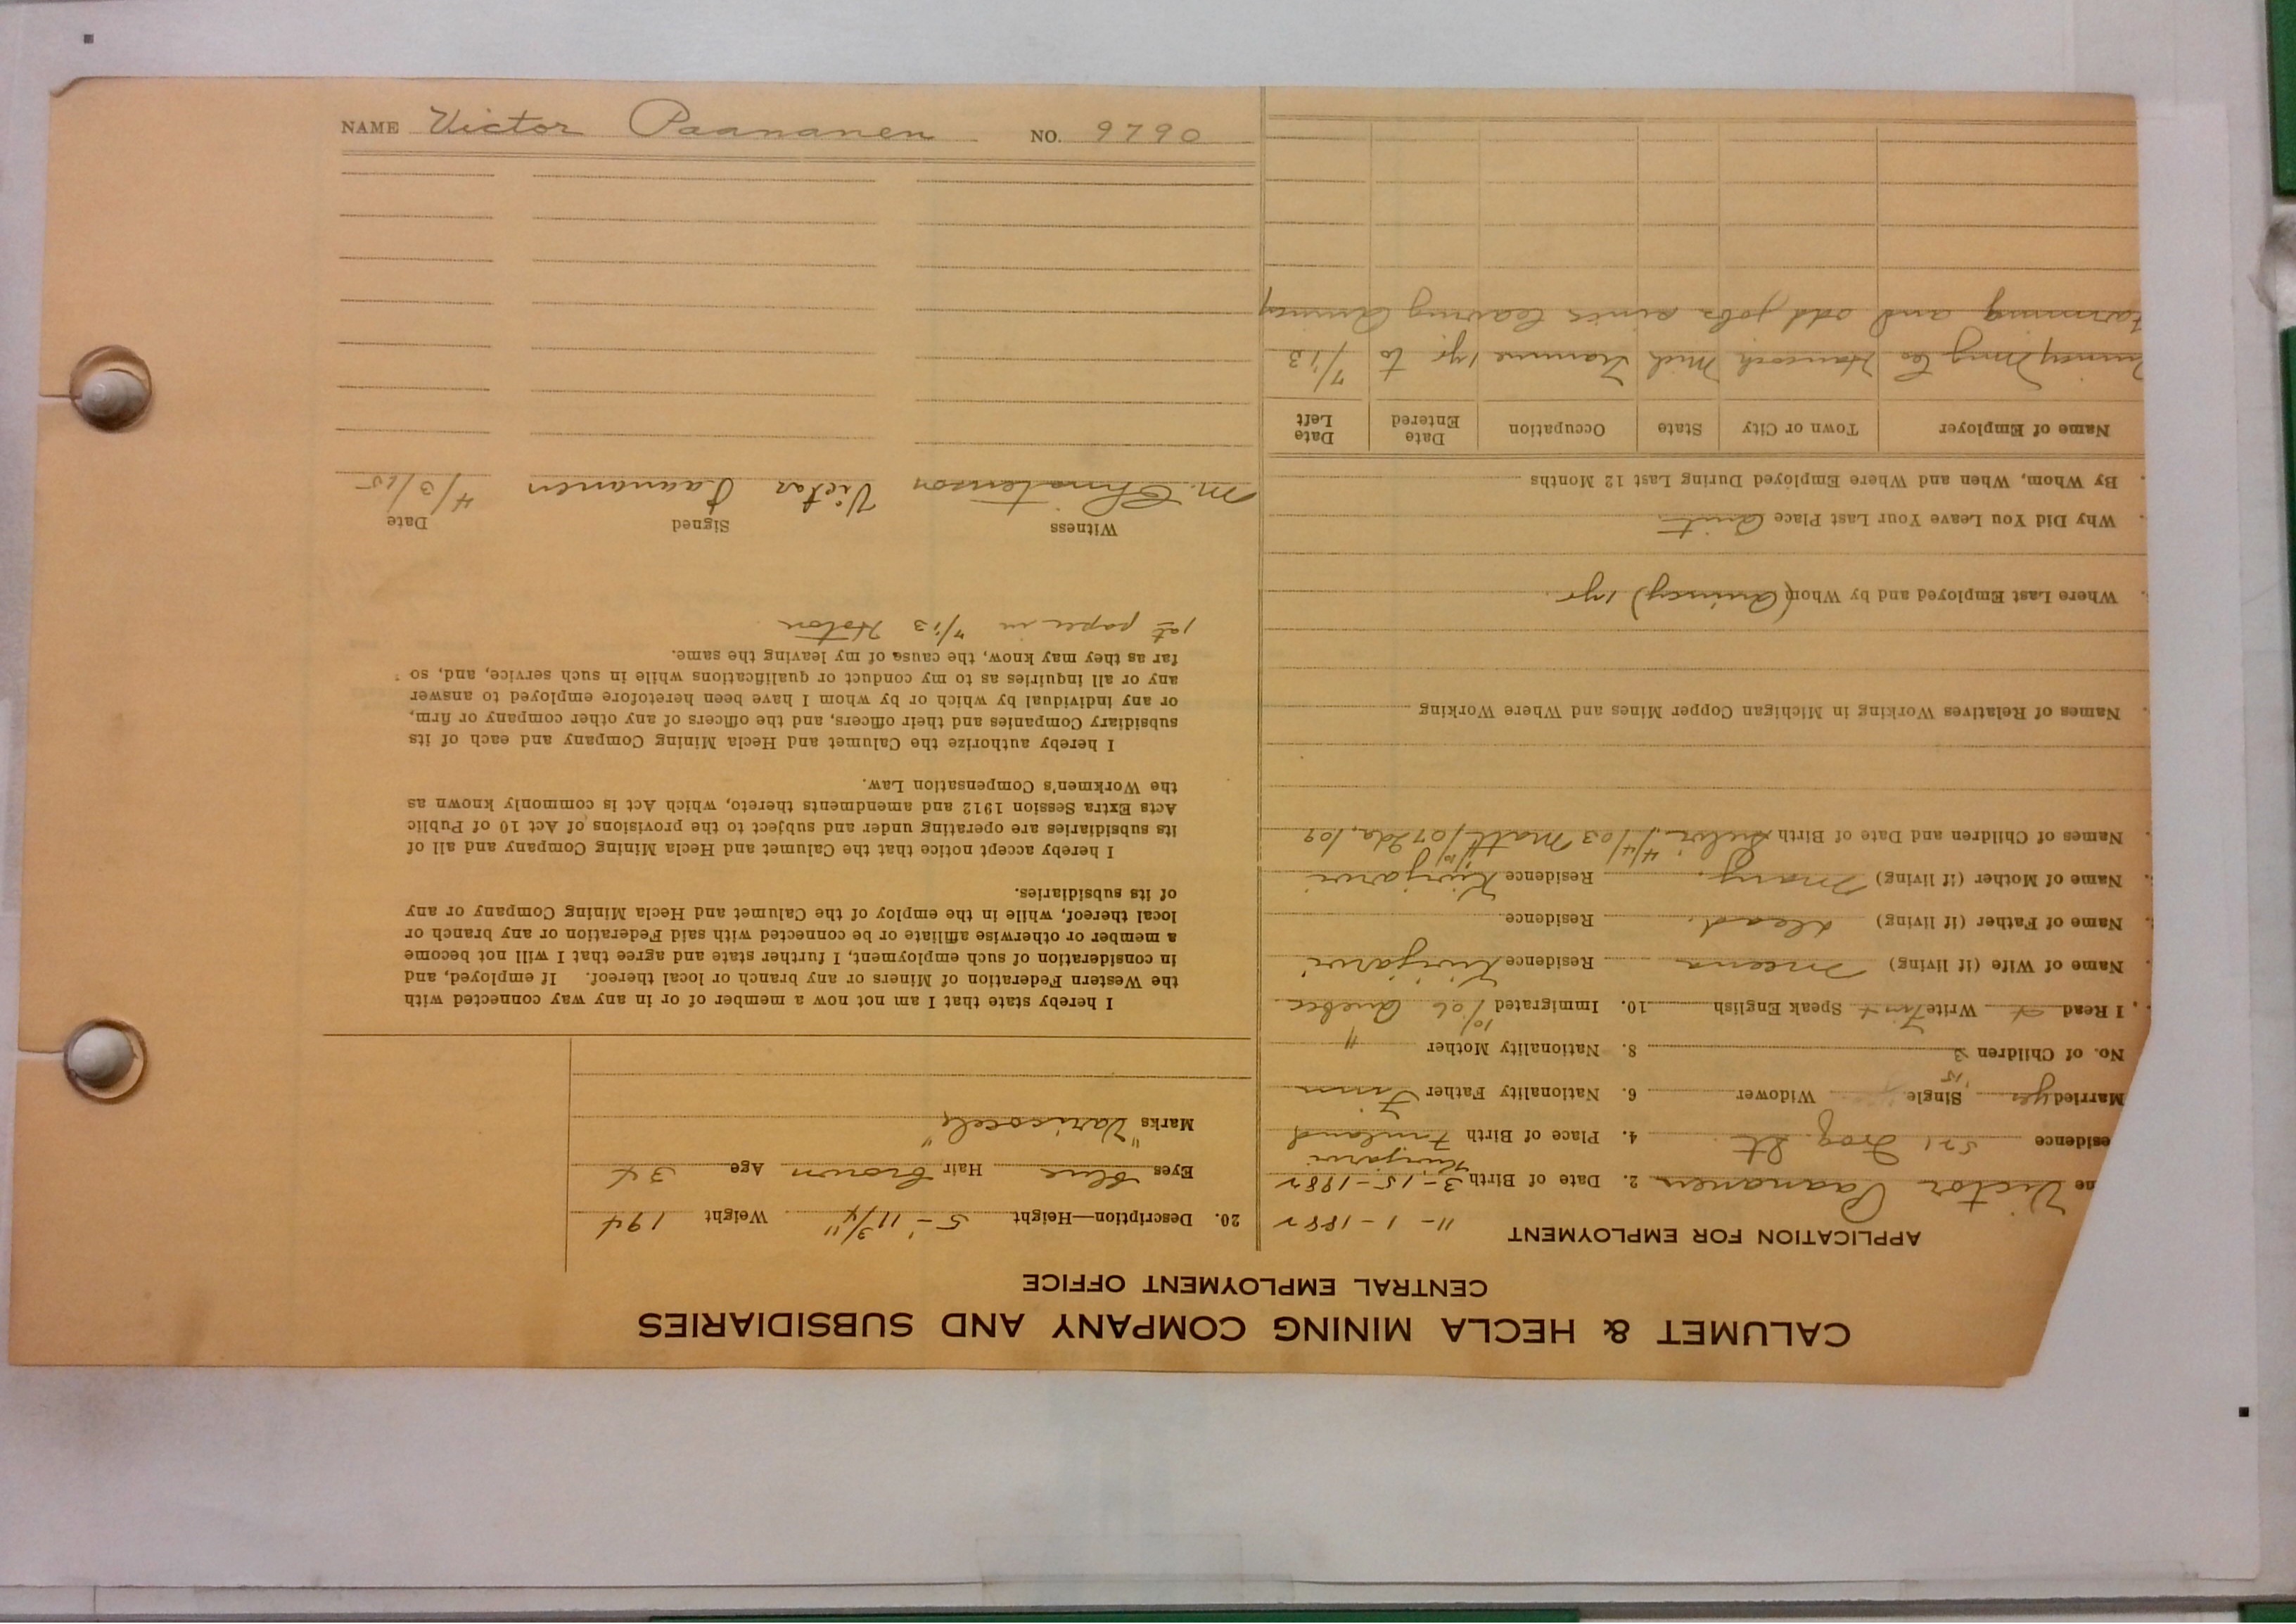 NAME Victor Paananen NO. 9790
CALUMET & HECLA MINING COMPANY AND SUBSIDIARIES
CENTRAL EMPLOYMENT OFFICE
APPLICATION FOR EMPLOYMENT
11-1-1882
me Victor Paananen 2. Date of Birth 3-15-1882
Kivijarvi
esidence 521 Frog St 4. Place of Birth Finland
Married yes Single Widower 6. Nationality Father Finn
15
No. of Children 3 8. Nationality Mother "
I Read Write Speak English 10. Immigrated 10/06 Quebec
Name of Wife (if living) Meena Residence Kivijarvi
Name of Father (if living) dead. Residence
Name of Mother (if living) Mary. Residence Kivijarvi
Names of Children and Date of Birth 4/4/03 Matt /07 Ida, /09
Names of Relatives Working in Michigan Copper Mines and Where Working
Where Last Employed and by Whom (Quincy) 1 yr.
Why Did You Leave Your Last Place Quit
By Whom, When and Where Employed During Last 12 Months
Name of Employer Town or City State Occupation Date Entered Date Left
Quincy Mng Co Hancock Mich Trammer 1 yr to 7/13
Farming and odd jobs since leaving Quincy
20. Description—Height 5'-11 3/4" Weight 194
Eyes blue Hair brown Age 34
Marks "Varicocele"
I hereby state that I am not now a member of or in any way connected with
the Western Federation of Miners or any branch or local thereof. If employed, and
in consideration of such employment, I further state and agree that I will not become
a member or otherwise affiliate or be connected with said Federation or any branch or
local thereof, while in the employ of the Calumet and Hecla Mining Company or any
of its subsidiaries.
I hereby accept notice that the Calumet and Hecla Mining Company and all of
its subsidiaries are operating under and subject to the provisions of Act 10 of Public
Acts Extra Session 1912 and amendments thereto, which Act is commonly known as
the Workmen's Compensation Law.
I hereby authorize the Calumet and Hecla Mining Company and each of its
subsidiary Companies and their officers, and the officers of any other company or firm,
or any individual by which or by whom I have been heretofore employed to answer
any or all inquiries as to my conduct or qualifications while in such service, and, so
far as they may know, the cause of my leaving the same.
1st paper in 7/13 Hoton
Witness Signed Date
M. Christenson Victor Paananen 4/3/15